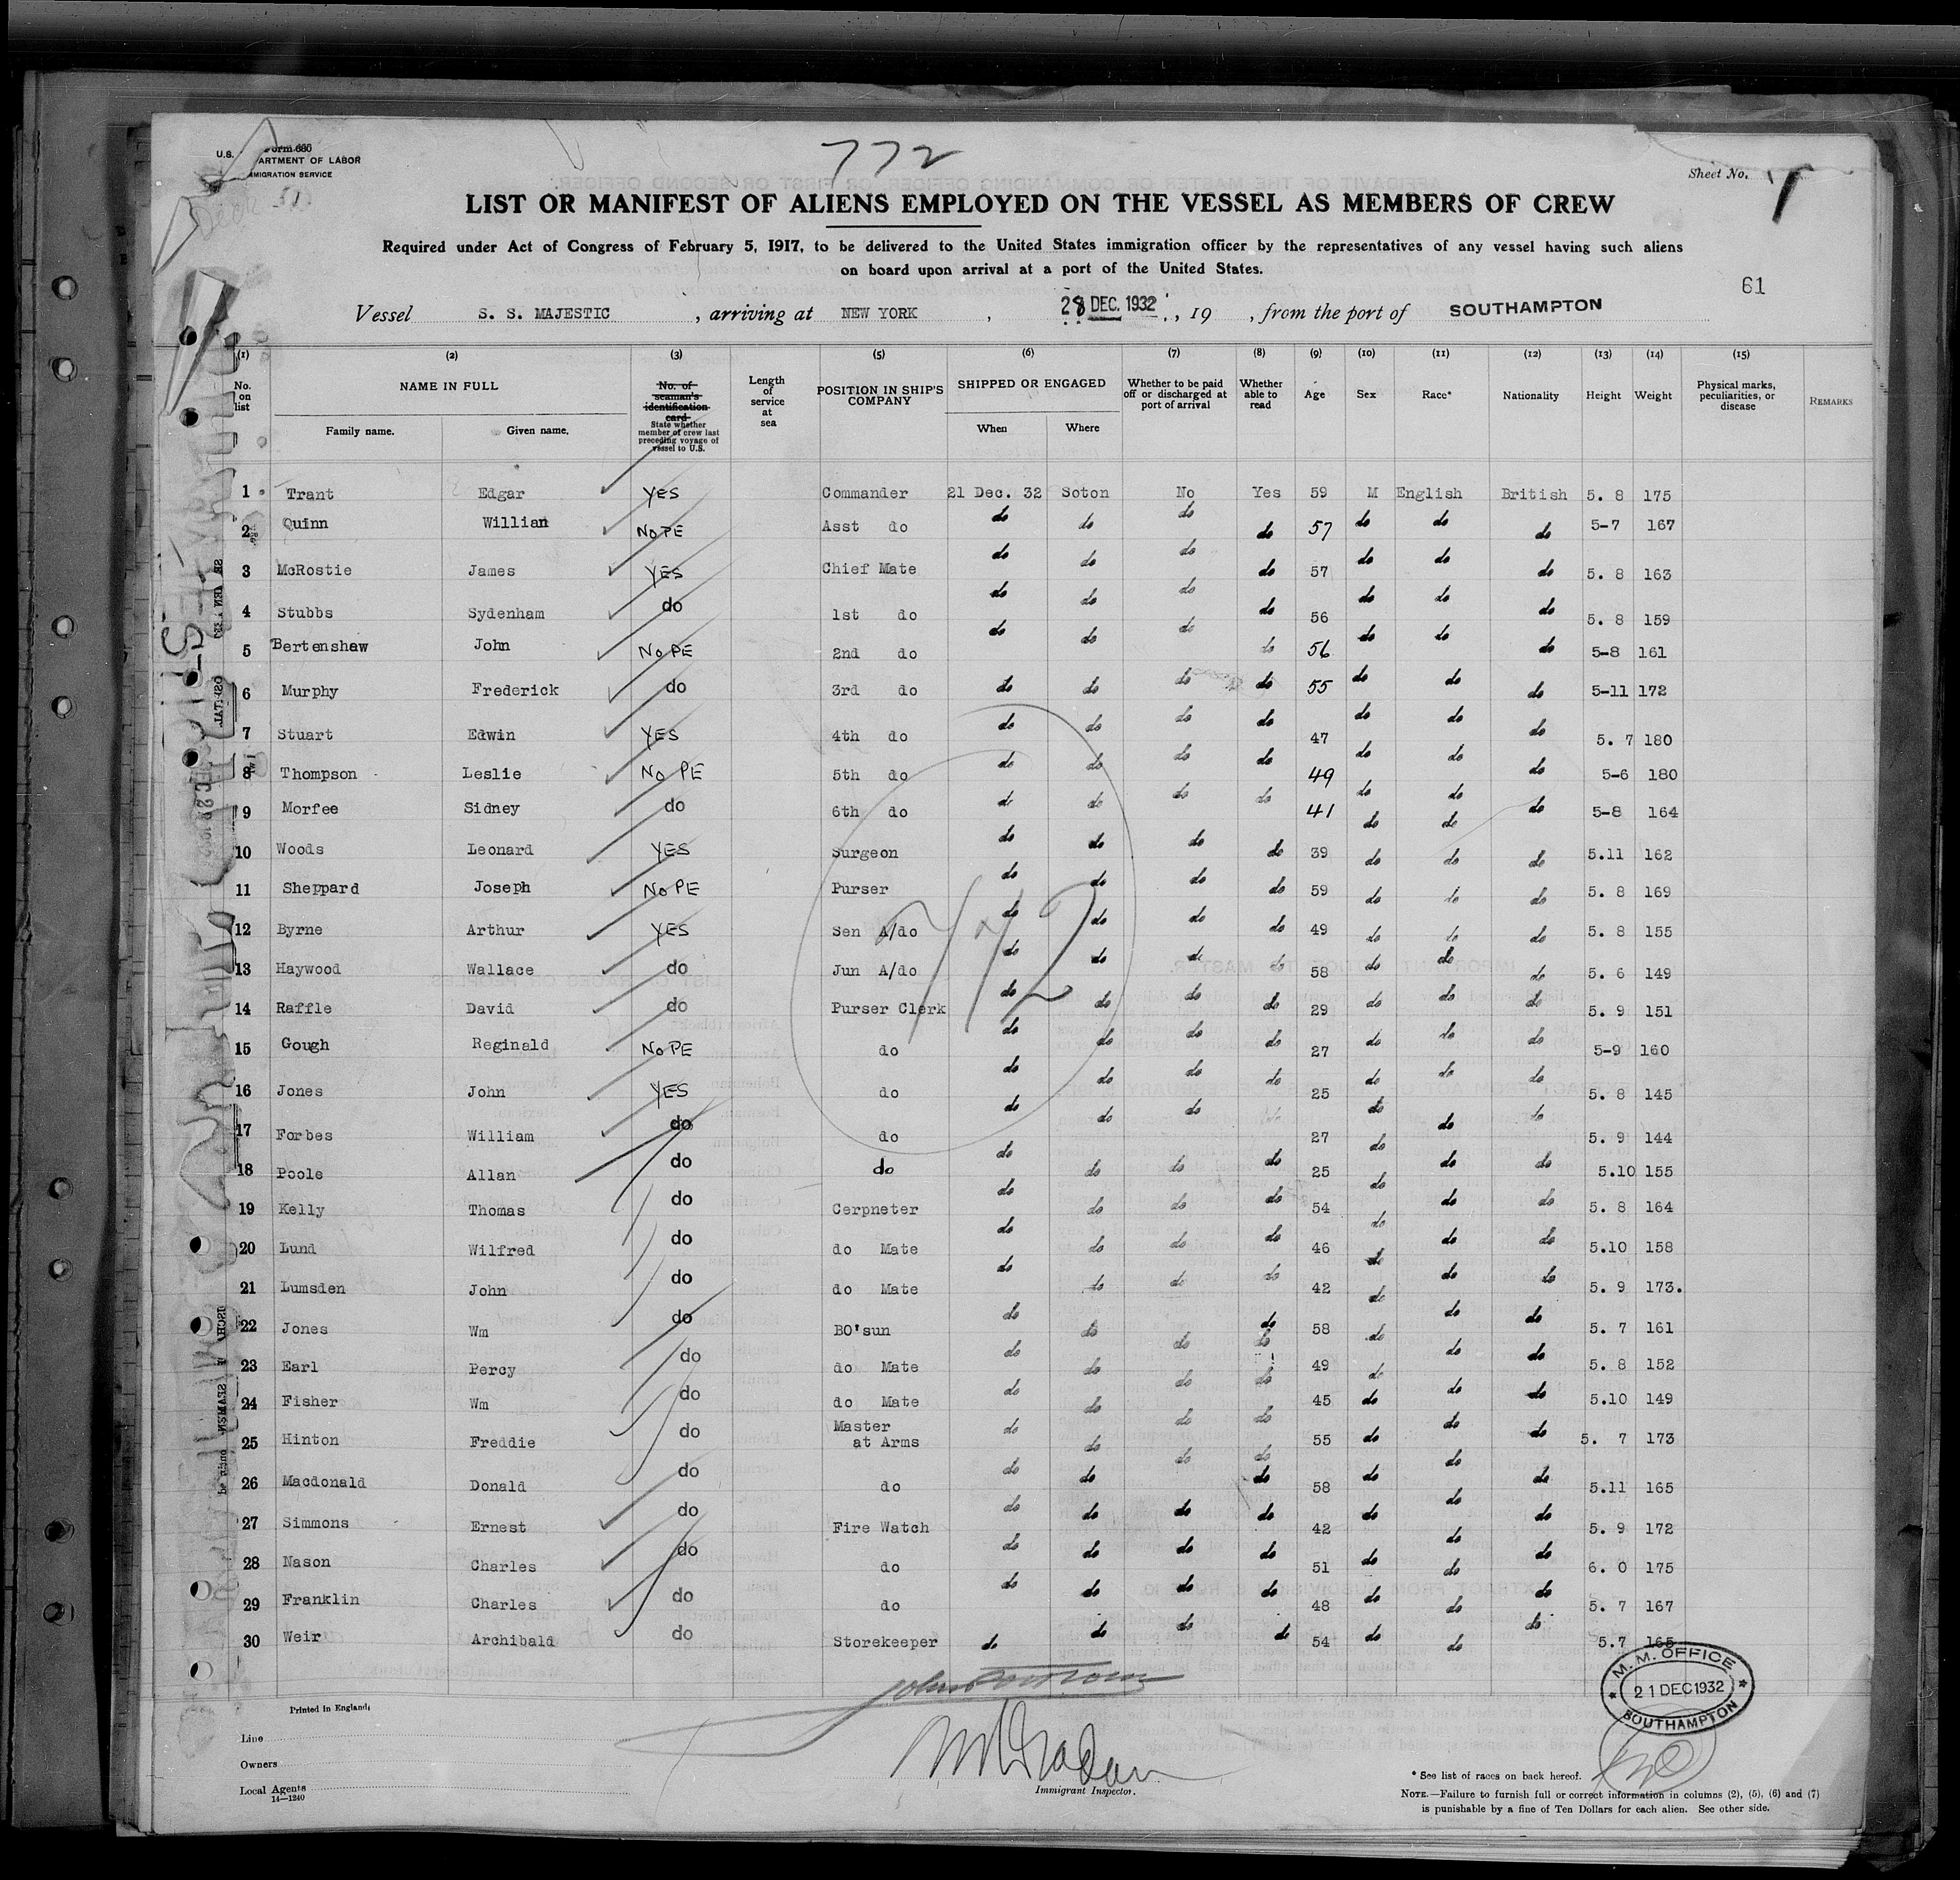 772
Form 680
U.S. DEPARTMENT OF LABOR
IMMIGRATION SERVICE
Sheet No. 1
LIST OR MANIFEST OF ALIENS EMPLOYED ON THE VESSEL AS MEMBERS OF CREW
Required under Act of Congress of February 5, 1917, to be delivered to the United States immigration officer by the representatives of any vessel having such aliens
on board upon arrival at a port of the United States.
61
Vessel S. S. MAJESTIC , arriving at NEW YORK , 28 DEC. 1932 , 19 , from the port of SOUTHAMPTON
(1) (2) (3) (5) (6) (7) (8) (9) (10) (11) (12) (13) (14) (15)
No. on list NAME IN FULL Family name. Given name. No. of seaman's identification card State whether member of crew last preceding voyage of vessel to U.S. Length of service at sea POSITION IN SHIP'S COMPANY SHIPPED OR ENGAGED When Where Whether to be paid off or discharged at port of arrival Whether able to read Age Sex Race* Nationality Height Weight Physical marks, peculiarities, or disease REMARKS
1 Trant Edgar YES Commander 21 Dec. 32 Soton No Yes 59 M English British 5. 8 175
2 Quinn Willian NO PE Asst do do do do do 57 do do do 5-7 167
3 McRostie James YES Chief Mate do do do do 57 do do do 5. 8 163
4 Stubbs Sydenham do 1st do do do do do 56 do do do 5. 8 159
5 Bertenshaw John NO PE 2nd do do do do do 56 do do do 5-8 161
6 Murphy Frederick do 3rd do do do do do 55 do do do 5-11 172
7 Stuart Edwin YES 4th do do do do do 47 do do do 5. 7 180
8 Thompson Leslie NO PE 5th do do do do do 49 do do do 5-6 180
9 Morfee Sidney do 6th do do do do do 41 do do do 5-8 164
10 Woods Leonard YES Surgeon do do do do 39 do do do 5.11 162
11 Sheppard Joseph NO PE Purser do do do do 59 do do do 5. 8 169
12 Byrne Arthur YES Sen A/do do do do do 49 do do do 5. 8 155
13 Haywood Wallace do Jun A/do do do do do 58 do do do 5. 6 149
14 Raffle David do Purser Clerk do do do do 29 do do do 5. 9 151
15 Gough Reginald NO PE do do do do do 27 do do do 5-9 160
16 Jones John YES do do do do do 25 do do do 5. 8 145
17 Forbes William do do do do do do 27 do do do 5. 9 144
18 Poole Allan do do do do do do 25 do do do 5.10 155
19 Kelly Thomas do Cerpneter do do do do 54 do do do 5. 8 164
20 Lund Wilfred do do Mate do do do do 46 do do do 5.10 158
21 Lumsden John do do Mate do do do do 42 do do do 5. 9 173.
22 Jones Wm do BO'sun do do do do 58 do do do 5. 7 161
23 Earl Percy do do Mate do do do do 49 do do do 5. 8 152
24 Fisher Wm do do Mate do do do do 45 do do do 5.10 149
25 Hinton Freddie do Master at Arms do do do do 55 do do do 5. 7 173
26 Macdonald Donald do do do do do do 58 do do do 5.11 165
27 Simmons Ernest do Fire Watch do do do do 42 do do do 5. 9 172
28 Nason Charles do do do do do do 51 do do do 6. 0 175
29 Franklin Charles do do do do do do 48 do do do 5. 7 167
30 Weir Archibald do Storekeeper do do do do 54 do do do 5.7 165
Printed in England.
M. M. OFFICE
21 DEC 1932
SOUTHAMPTON
Line
Owners
Local Agents
14—1240
Immigrant Inspector.
* See list of races on back hereof.
NOTE.—Failure to furnish full or correct information in columns (2), (5), (6) and (7)
is punishable by a fine of Ten Dollars for each alien. See other side.